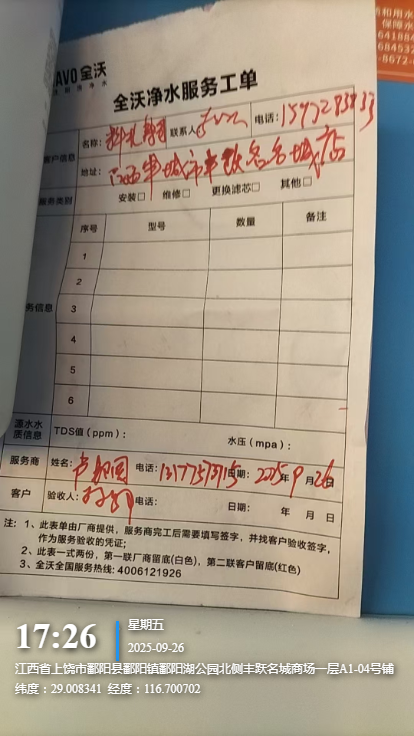 AVO 全沃
全沃净水服务工单
客户信息
名称：
联系人
电话：
地址：
服务类别
安装□ 维修□ 更换滤芯□ 其他□
务信息
序号 型号 数量 备注
1
2
3
4
5
6
源水水质信息
TDS值（ppm）： 水压（mpa）：
服务商 姓名： 电话： 日期： 2025年9月26日
客户 验收人： 电话： 日期： 年 月 日
注：1、此表单由厂商提供，服务商完工后需要填写签字，并找客户验收签字，
作为服务验收的凭证；
2、此表一式两份，第一联厂商留底(白色)，第二联客户留底(红色)
3、全沃全国服务热线: 4006121926
17:26
星期五
2025-09-26
江西省上饶市鄱阳县鄱阳镇鄱阳湖公园北侧丰跃名城商场一层A1-04号铺
纬度：29.008341 经度：116.700702